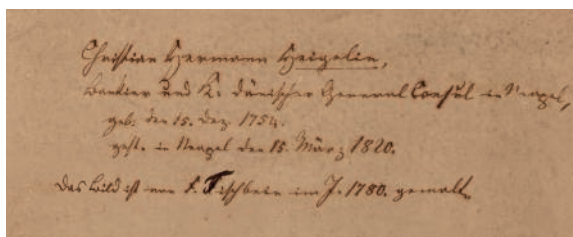 Christian Hermann Heigelin,
Bankier und K. dänischer General Consul in Neapel,
geb. den 15. Dez. 1754.
gest. in Neapel den 15. März 1820.
Das Bild ist von F. Tischbein im J. 1780. gemalt.